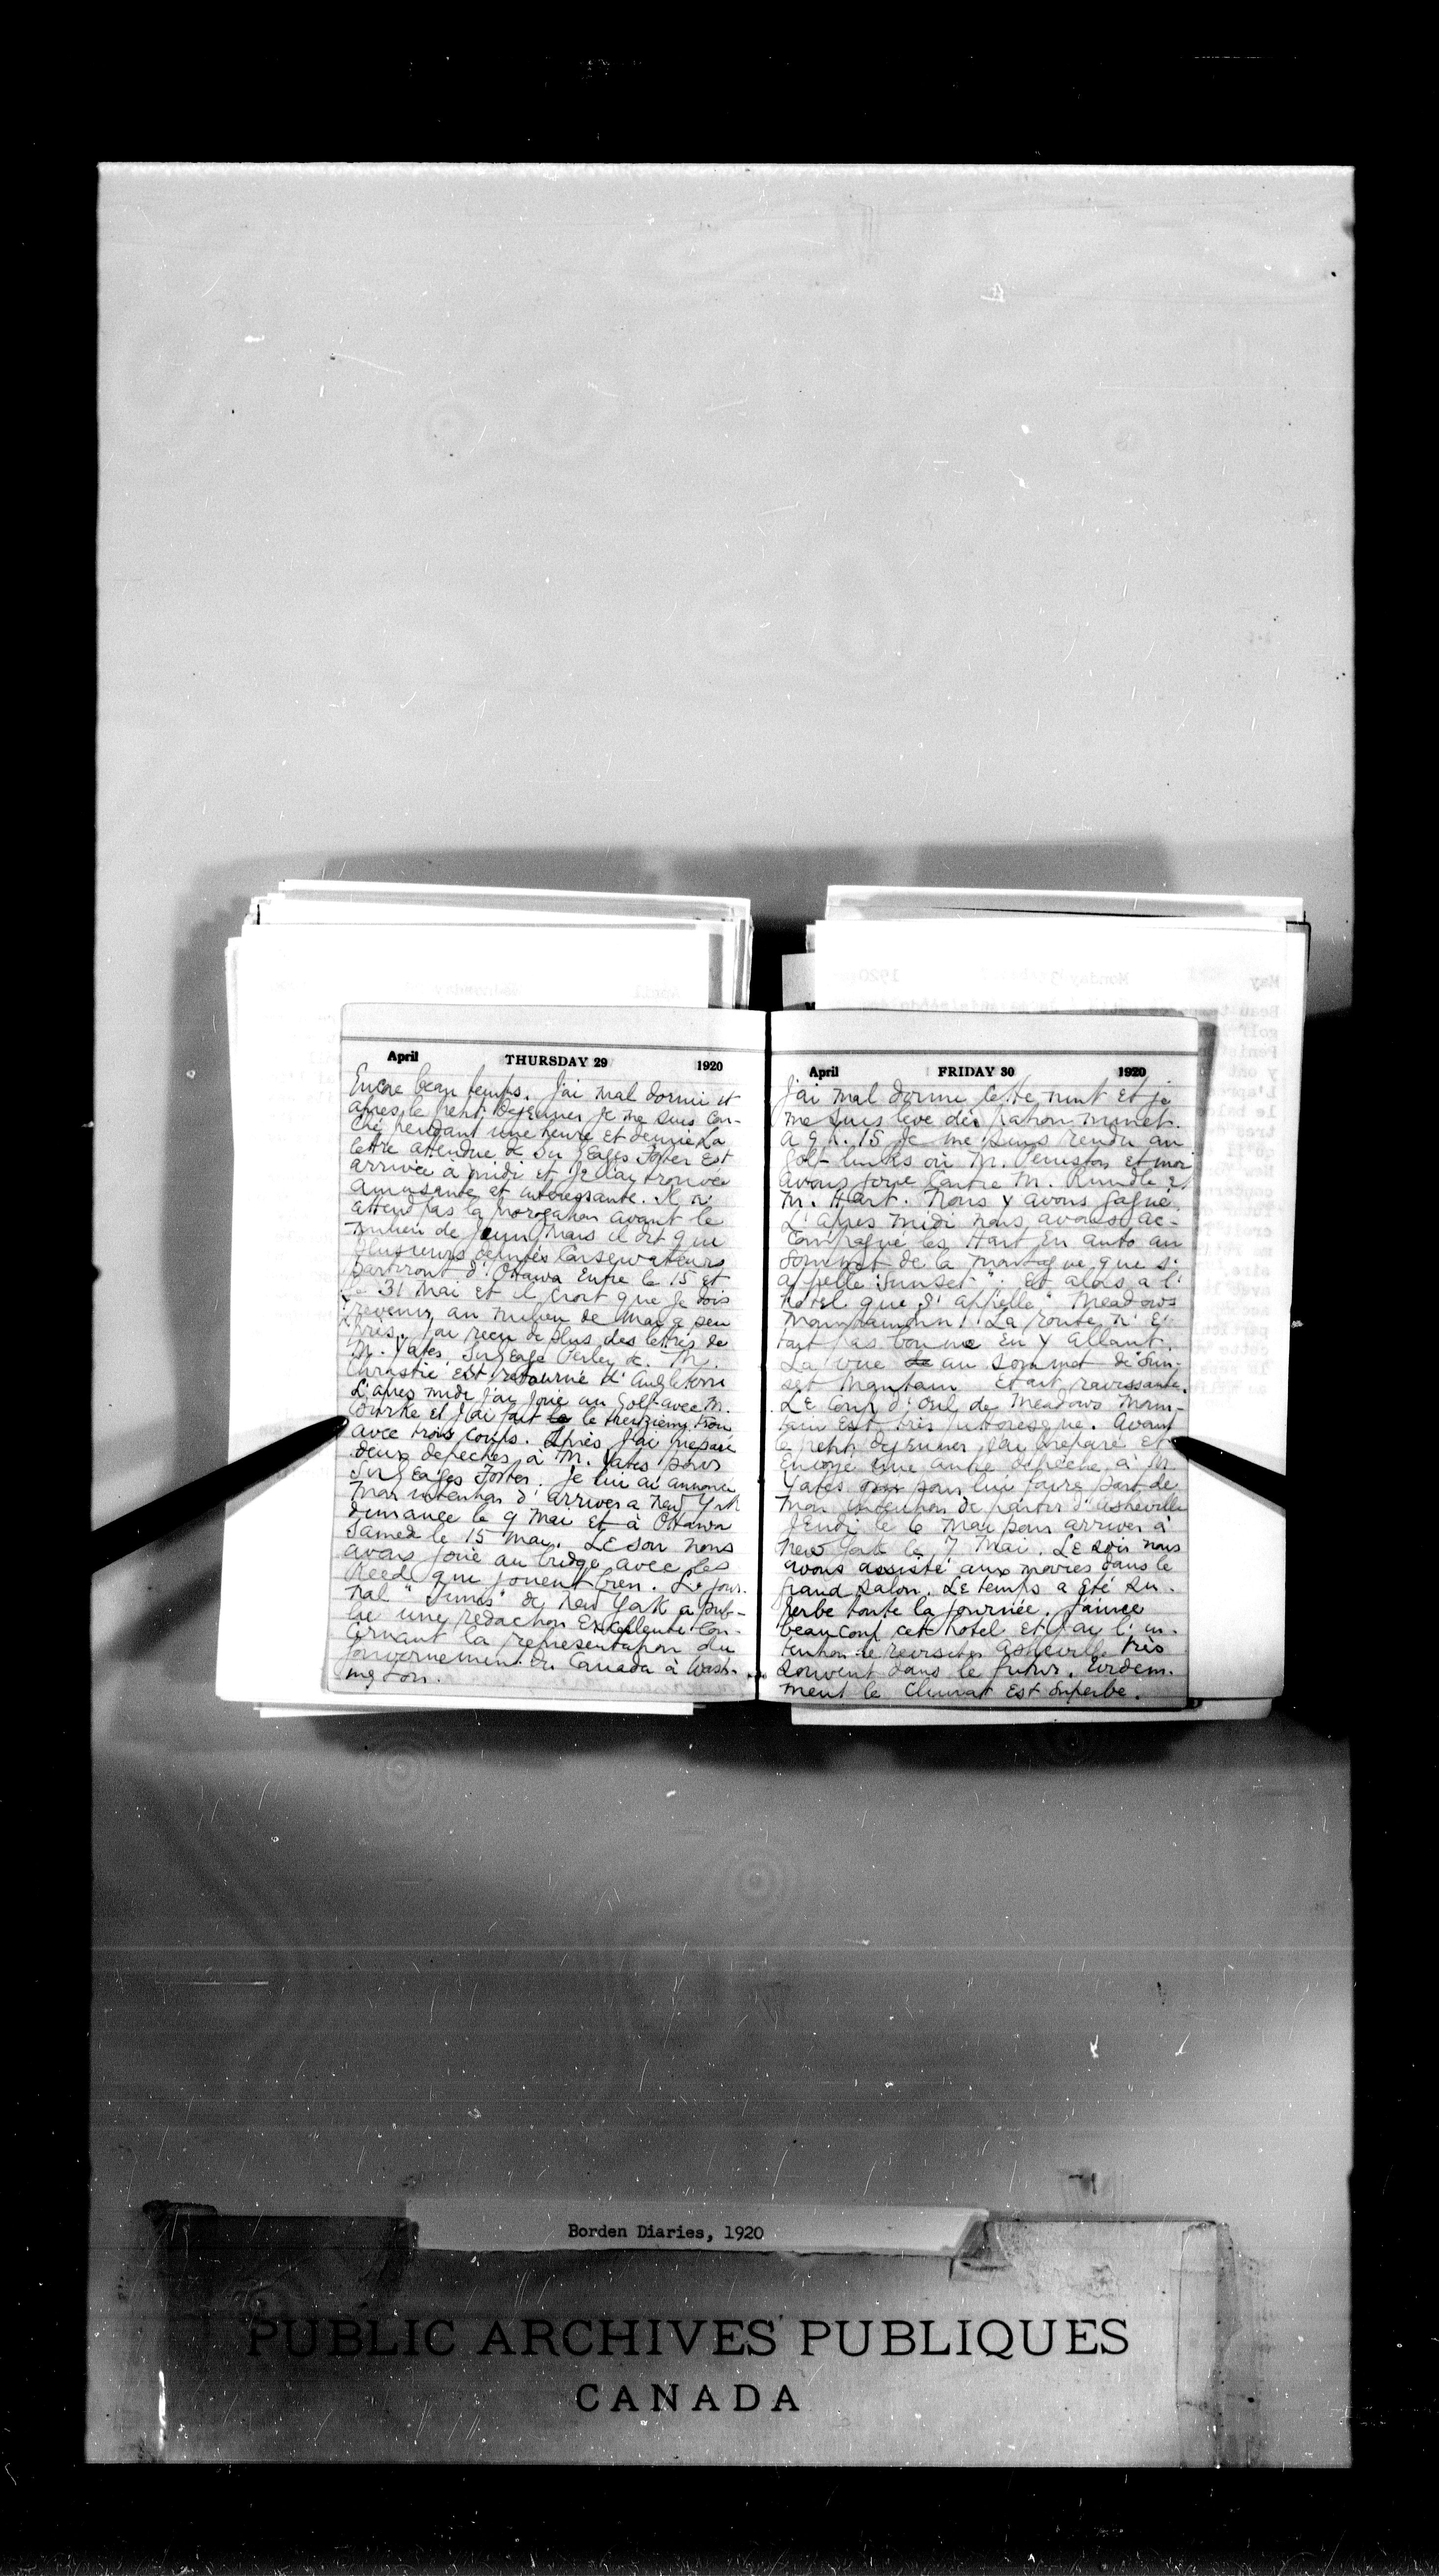 April THURSDAY 29 1920
Encore beau temps. J'ai mal dormi et
après le petit dejeuner je me suis cou-
ché pendant une heure et demie La
lettre attendue de Sir George Foster est
arrivée à midi et je l'ai trouvée
amusante et interessante. Il n'
attend pas la prorogation avant le
milieu de Juin mais il dit que
plusieurs deputés Conservateurs
partiront d'Ottawa entre le 15 et
le 31 mai et il croit que je dois
revenir au milieu de mai a peu
près. J'ai reçu de plus des lettres de
M. Yates, Sir George Perley &c. M.
Christie est retourné d'Angleterre
L'apres midi j'ai joué au Golf avec M.
Bourke et j'ai fait le le treizième trou
avec trois coups. Après j'ai preparé
deux depeches à M. Yates pour
Sir George Foster. Je lui ai annoncé
mon intention d'arriver a New York
dimanche le 9 Mai et à Ottawa
Samedi le 15 Mai. Le soir nous
avons joué au bridge avec les
Reed que jouent bien. Le jour-
nal "Times" de New York a pub-
lié une redaction excellente con-
cernant la representation du
gouvernement du Canada à Wash-
ington.
April FRIDAY 30 1920
J'ai mal dormi cette nuit et je
me suis levé dès patron minet.
A 9 h. 15 je me suis rendu au
Golf links où M. Peniston et moi
avons joué contre M. Rundle et
M. Hart. Nous y avons gagné.
L'apres midi nous avons ac-
compagné les Hart en auto au
Sommet de la montagne que s'
appelle "Sunset". Et alors a l'
hotel que s'appelle "Meadows
Mountain". La route n'é-
tait pas bonne en y allant.
La vue de au sommet de Sun-
set Mountain etait ravissante.
Le Coup d'oeil de Meadows Moun-
tain est très pittoresque. Avant
le petit dejeuner j'ai preparé et
envoyé une autre dépêche à M.
Yates pour lui faire part de
mon intention de partir d'Asheville
Jeudi le 6 Mai pour arriver à
New York le 7 Mai. Le soir nous
avons assisté aux movies dans le
grand salon. Le temps a été su-
perbe toute la journée. J'aime
beaucoup cet hotel et j'ai l'in-
tention de revisiter Asheville très
souvent dans le futur. Evidem-
ment le Climat est superbe.
May Monday 3 1920
Borden Diaries, 1920
PUBLIC ARCHIVES PUBLIQUES
CANADA